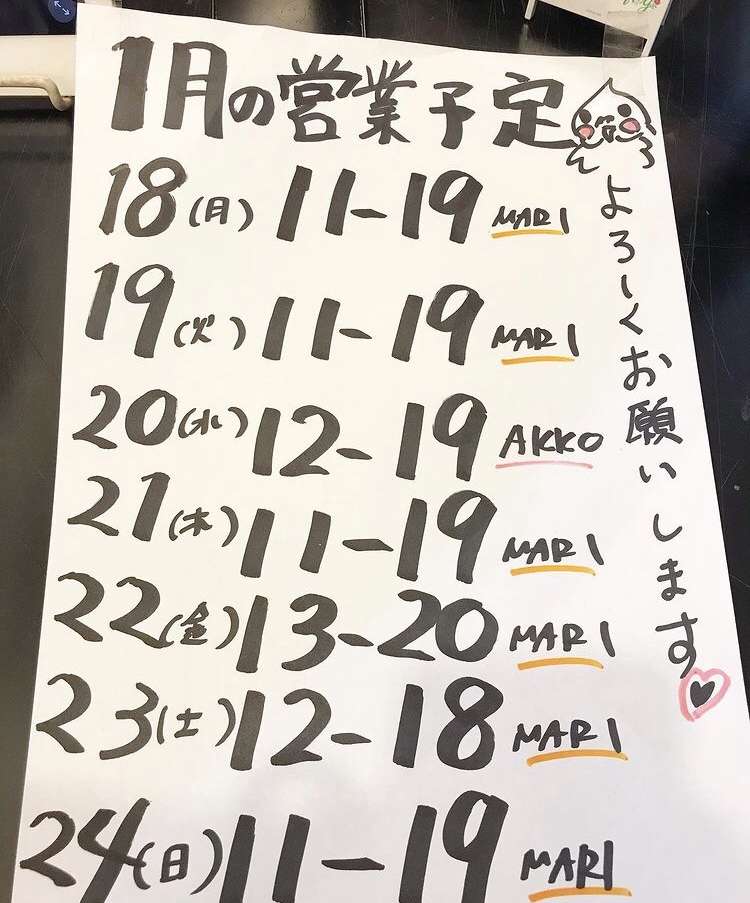 1月の営業予定
18(月) 11-19 MARI
19(火) 11-19 MARI
20(水) 12-19 AKKO
21(木) 11-19 MARI
22(金) 13-20 MARI
23(土) 12-18 MARI
24(日) 11-19 MARI
よろしくお願いします